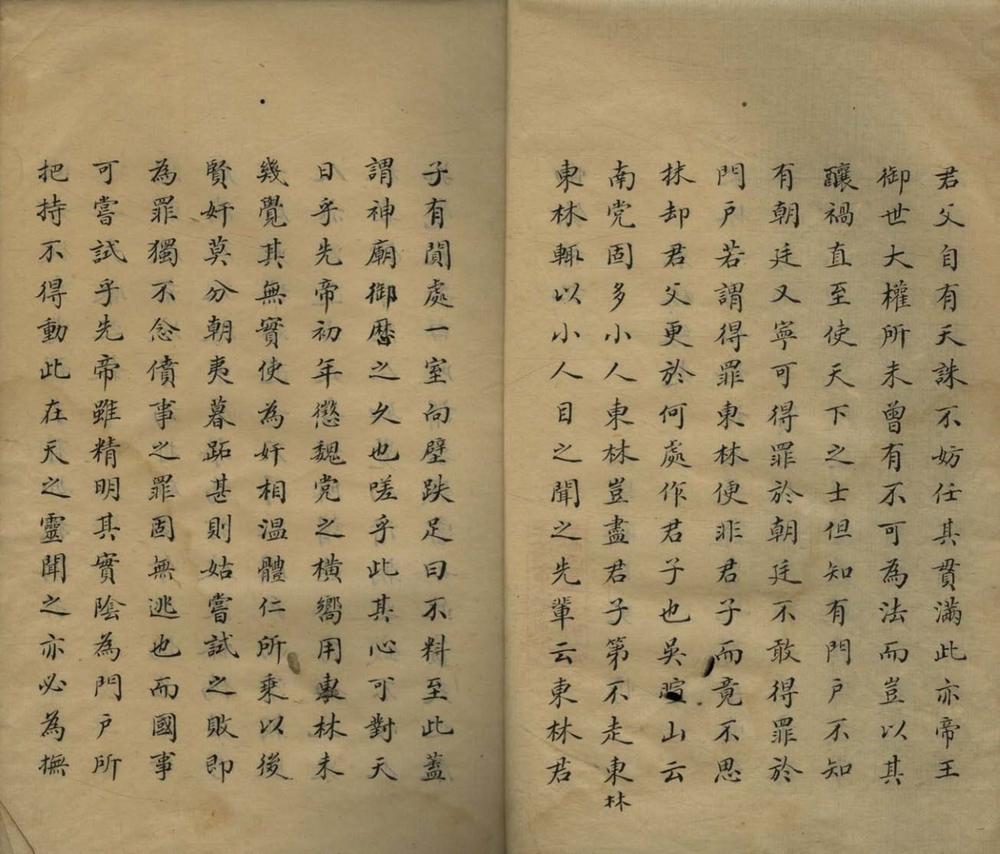 君父自有天誅不妨任其貫滿此亦帝王
御世大權所未曾有不可為法而豈以其
釀禍直至使天下之士但知有門戶不知
有朝廷又寧可得罪於朝廷不敢得罪於
門戶若謂得罪東林便非君子而竟不思
抹却君父更於何處作君子也吳暄山云
南党固多小人東林豈盡君子第不走東林
東林輒以小人目之聞之先輩云東林君
子有閴處一室向壁跌足曰不料至此蓋
謂神廟御曆之久也嗟乎此其心可對天
日乎先帝初年懲魏党之橫嚮用東林未
幾覺其無實使為奸相温體仁所乘以後
賢奸莫分朝夷暮跖甚則姑嘗試之敗即
為罪獨不念僨事之罪固無逃也而國事
可嘗試乎先帝雖精明其實陰為門戶所
把持不得動此在天之靈聞之亦必為撫